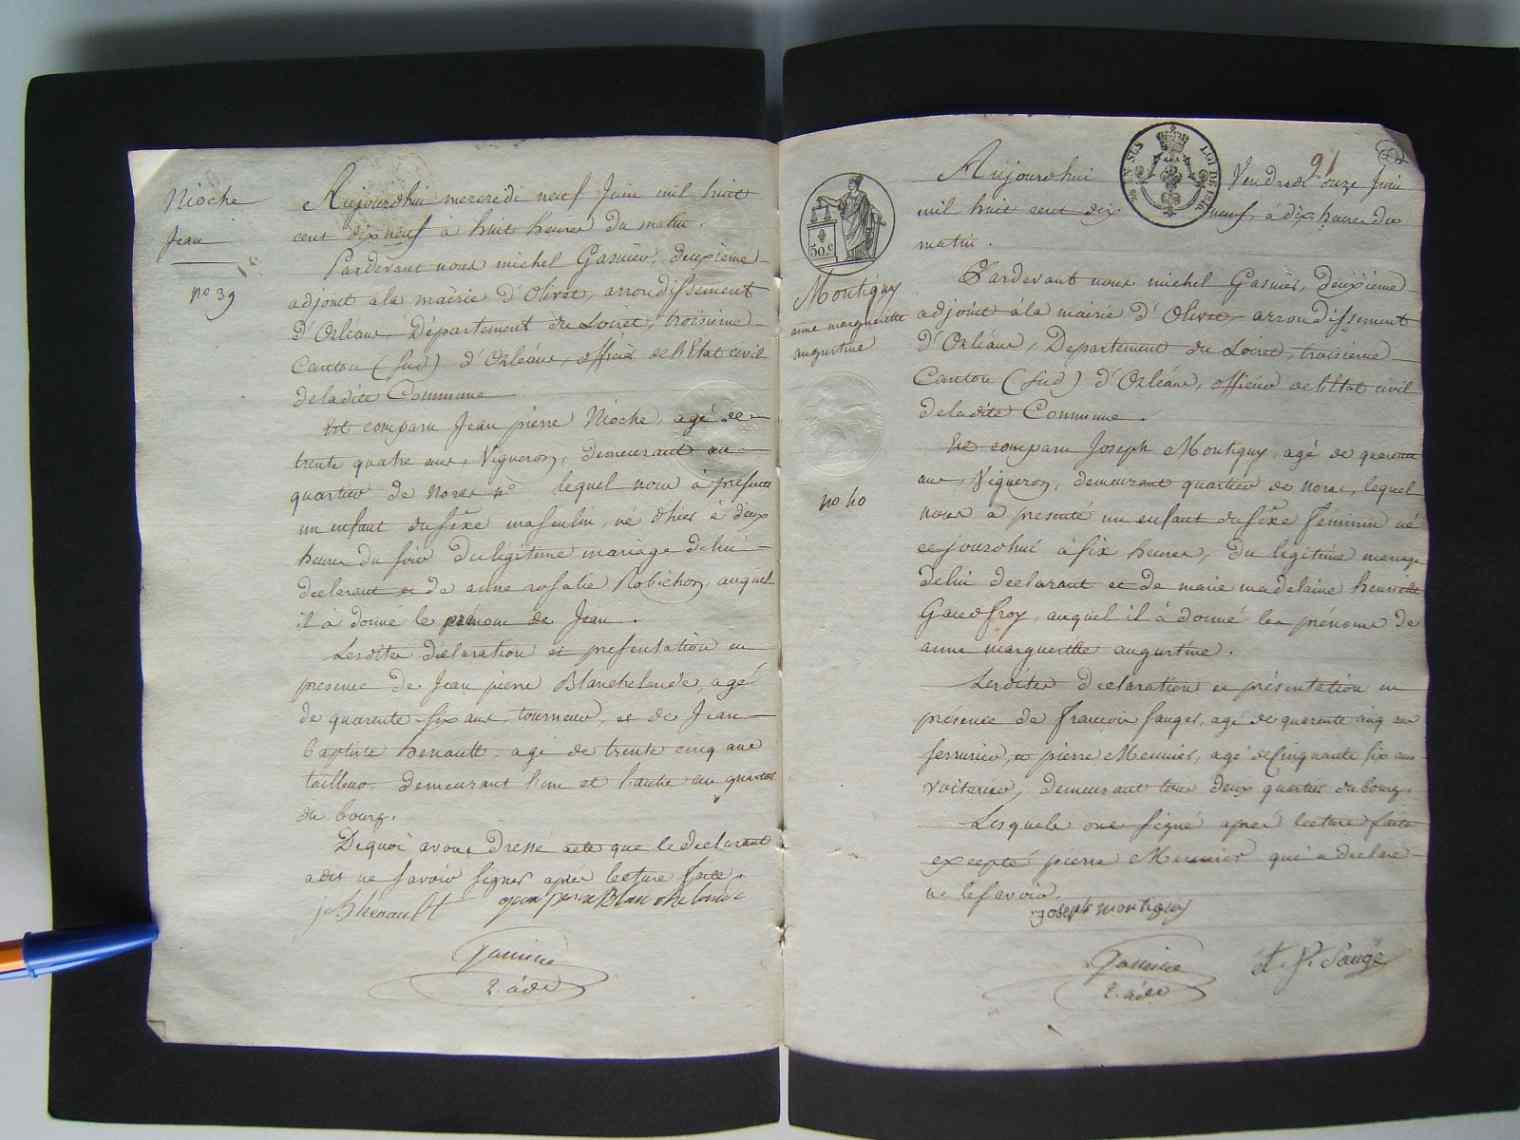 Nioche
Jean
no 39
Aujourdhui mercredi neuf Juin mil huit
cent dix neuf a huit heures du matin.
Pardevant nous michel Gasnier, deuxième
adjoint a la mairie d'Olivet, arrondissement
d'Orléans Département du Loiret, troisième
Canton (Sud) d'Orléans, officier de l'Etat civil
de la dite Commune
Est comparu Jean pierre Nioche, agé de
trente quatre ans, Vigneron, demeurant au
quartier de Noras lequel nous à présenté
un enfant du sexe masculin, né d'hier à deux
heures du soir du légitime mariage de lui
declarant et de anne rosalie Robichon, auquel
il à donné le prénom de Jean.
Lesdites déclaration et présentation en
presence de Jean pierre Blanchelande, agé
de quarente six ans, tourneur, et de Jean
baptiste henault, agé de trente cinq ans
tailleur demeurant l'un et l'autre au quartier
du bourg.
De quoi avons Dressé acte que le declarant
a dit ne savoir signer apres lecture faite.
jb henault jean pierre Blanchelande
Gasnier
2. adj
91
Aujourdhui Vendredi onze Juin
mil huit cent dix neuf, à dix heures du
matin.
50 c
Montigny
anne marguerite
augustine
no 40
Pardevant nous michel Gasnier, deuxième
adjoint à la mairie d'Olivet, arrondissement
d'Orléans, Département du Loiret, troisième
Canton (Sud) d'Orléans, officier de l'Etat civil
de la dite Commune.
Est comparu Joseph Montigny, agé de quarente
ans, Vigneron, demeurant quartier de Noras, lequel
nous a présenté un enfant du sexe féminin né
ce jourdhui à six heures, du légitime mariage
de lui declarant et de marie madelaine henriette
Gaudfroy, auquel il à donné les prénoms de
anne marguerite augustine.
Lesdites declaration et présentation en
présence de françois Sauger, agé de quarente cinq ans
serrurier, et pierre Meunier, agé de cinquante six ans
voiturier, demeurant tous deux quartier du bourg.
Lesquels ont signé apres lecture faite
excepté pierre Meunier qui a declaré
ne le savoir.
joseph montigny
Gasnier
2. adj